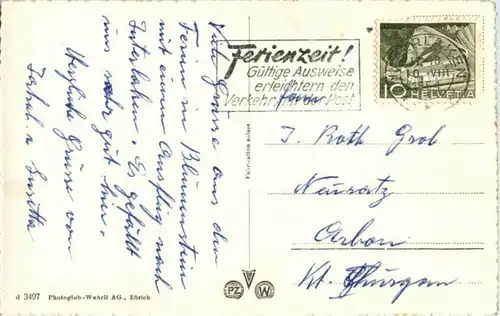 Viele Grüsse aus den
Ferien in Blumenstein
mit einem Ausflug nach
Interlaken. Es gefällt
uns sehr gut hier.
Herzliche Grüsse von
Ferienzeit!
Gültige Ausweise
erleichtern den
Verkehr Post
10 HELVETIA
VIII
Fam.
J. Roth Grob
Neusatz
Arbon
Kt. Thurgau
Fabrication suisse
PZ W
d 3497 Photoglob-Wehrli AG., Zürich